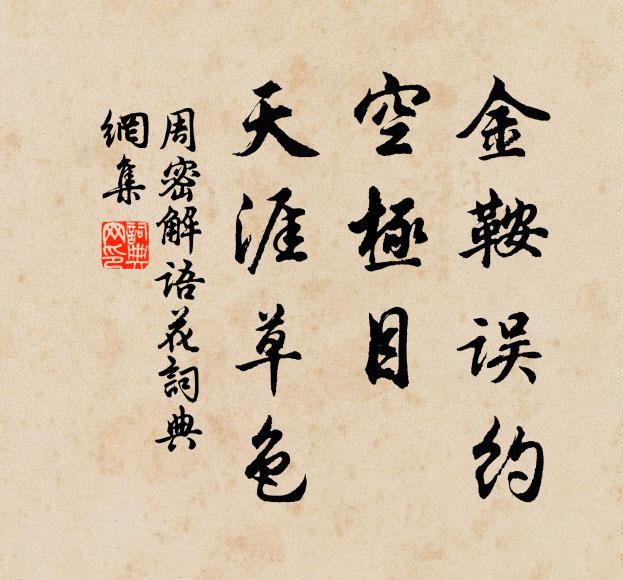 金鞍误约
空極目
天涯草色
周密解语花詞典
網集
詞典
网印